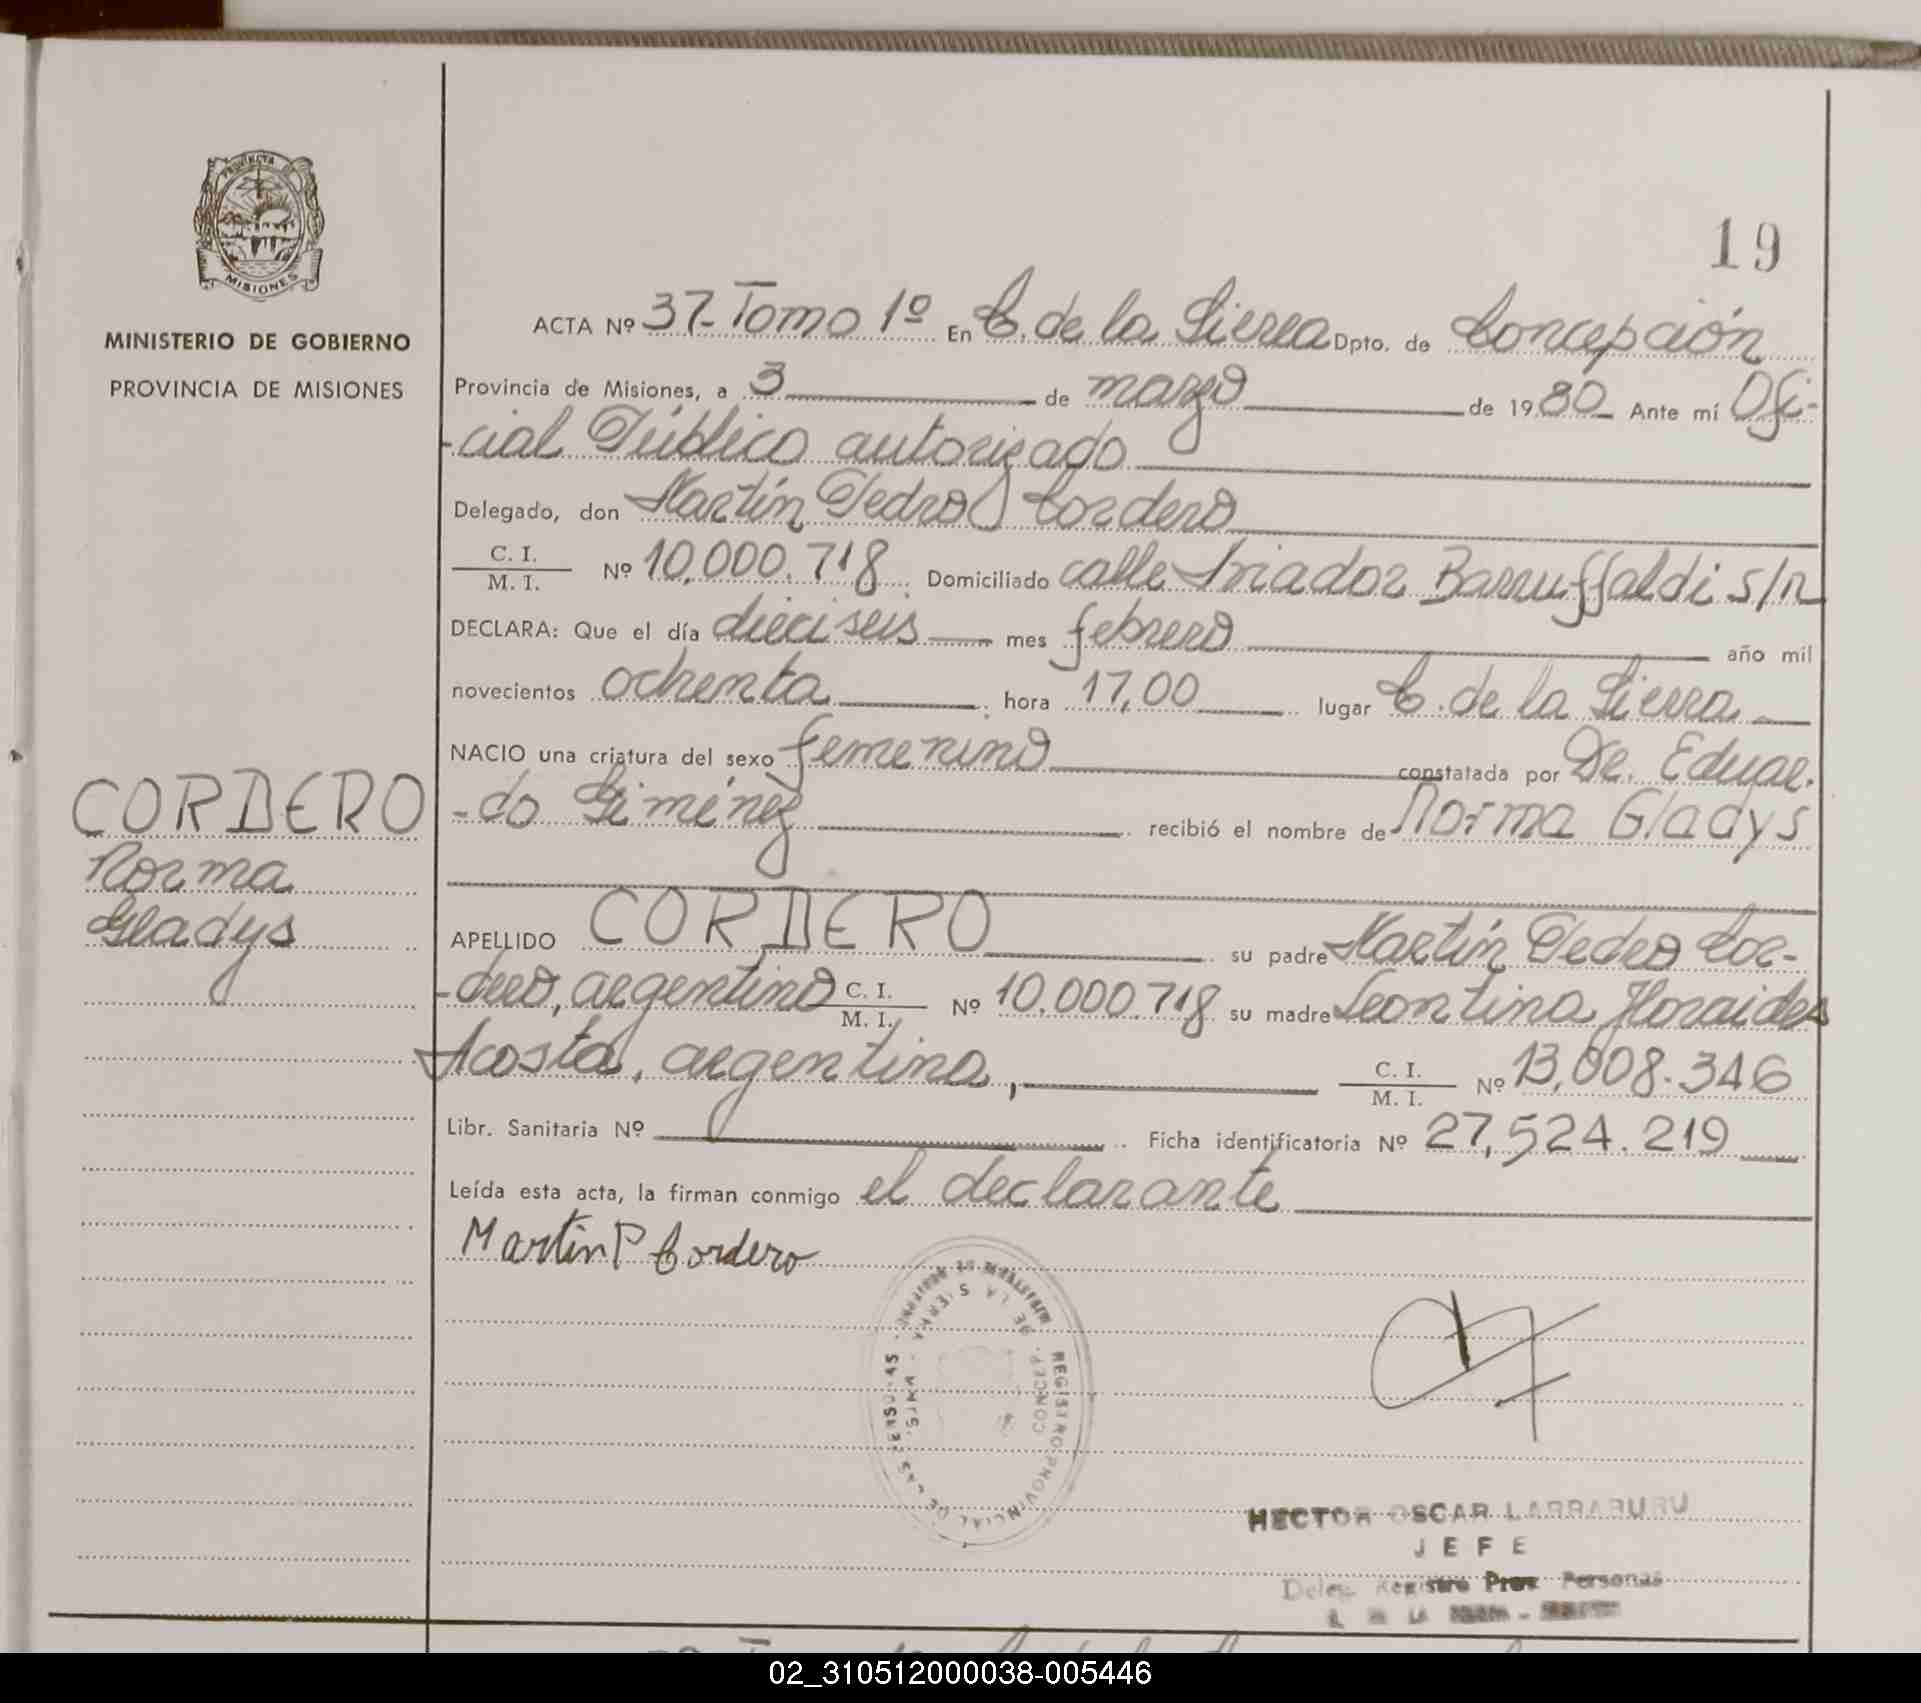 PROVINCIA DE
MISIONES
MINISTERIO DE GOBIERNO
PROVINCIA DE MISIONES
CORDERO
Norma
Gladys
19
ACTA Nº 37- Tomo 1º En C. de la Sierra Dpto. de Concepción
Provincia de Misiones, a 3 de marzo de 1980 Ante mí Ofi-
-cial Público autorizado
Delegado, don Martín Pedro Cordero
C. I.
M. I. Nº 10.000.718 Domiciliado calle Barruffaldi s/n
DECLARA: Que el día dieciseis mes febrero año mil
novecientos ochenta hora 17,00 lugar C. de la Sierra
NACIO una criatura del sexo femenino constatada por Dr. Eduar-
-do Giménez recibió el nombre de Norma Gladys
APELLIDO CORDERO su padre Martín Pedro Cor-
-dero, argentino C. I. M. I. Nº 10.000.718 su madre Leontina
Acosta, argentina, C. I. M. I. Nº 13,008.346
Libr. Sanitaria Nº Ficha identificatoria Nº 27,524.219
Leída esta acta, la firman conmigo el declarante
Martin P Cordero
REGISTRO PROVINCIAL DE LAS PERSONAS
CONCEP. DE LA SIERRA - MNES.
HECTOR OSCAR LARRABURU
JEFE
Deleg. Registro Prov. Personas
02_310512000038-005446